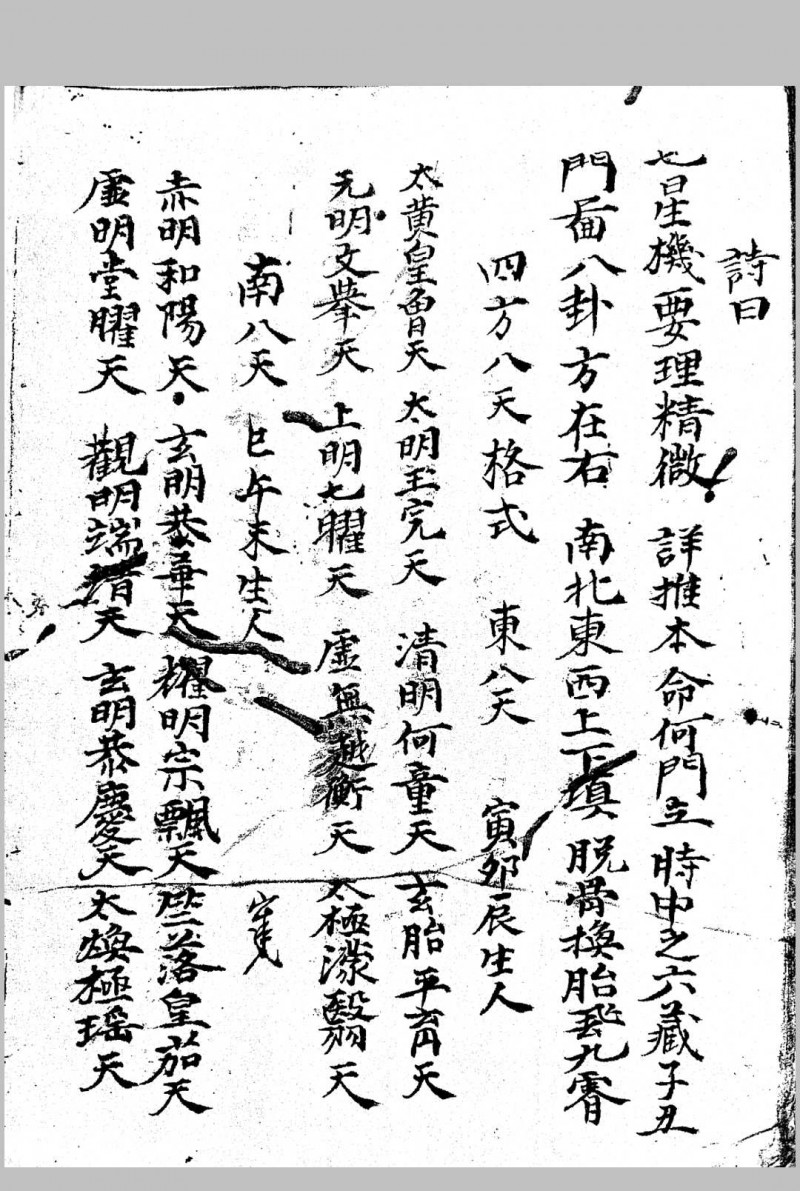 詩曰
七星機要理精微 詳推本命何門立 時中之六藏子丑
門面八卦方在右 南北東西上下填 脱骨換胎登九霄
四方八天格式 東八天 寅卯辰生人
太黄皇曾天 太明玉完天 清明何童天 玄胎平育天
元明文舉天 上明七曜天 虛無越衡天 太極濛翳天
南八天 巳午未生人
赤明和陽天 玄明恭華天 耀明宗飄天 竺落皇茄天
虛明堂曜天 觀明端清天 玄明恭慶天 太煥極瑶天